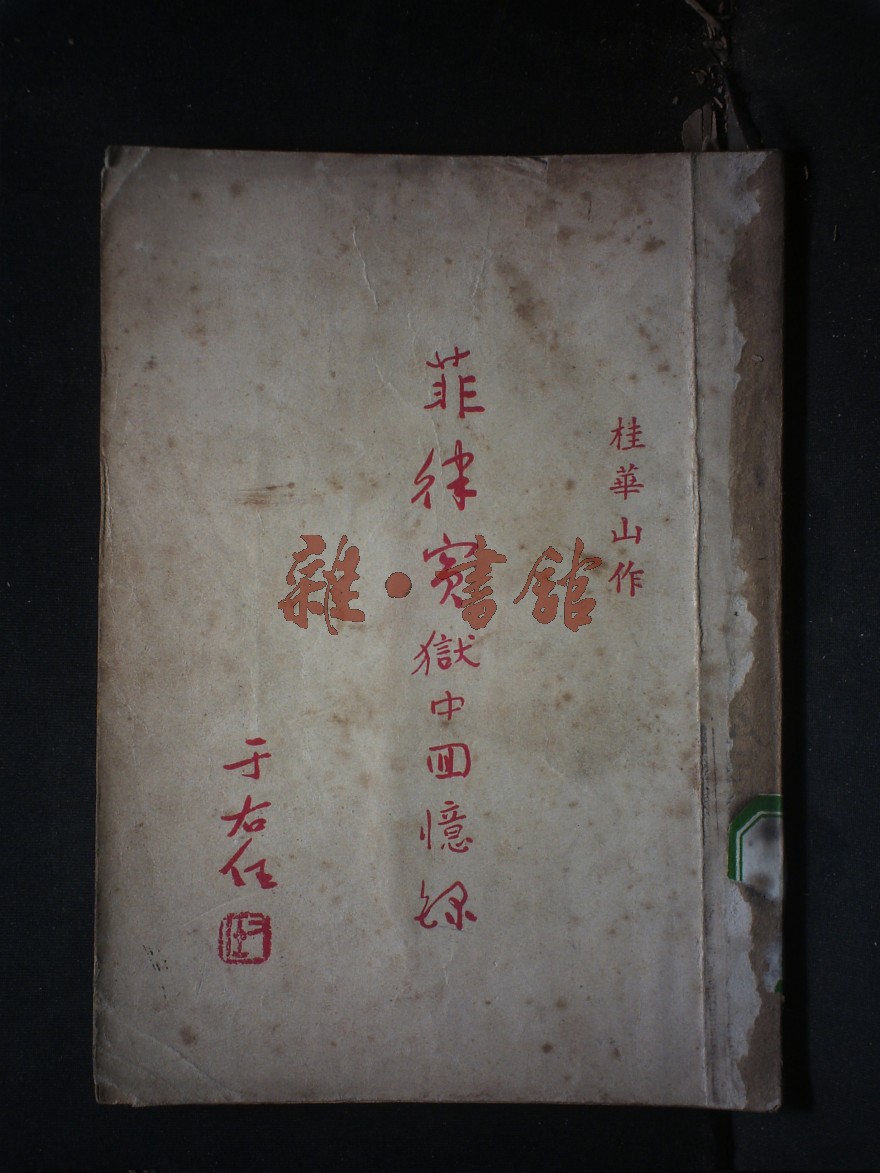 桂華山作
菲律賓獄中回憶錄
于右任
雜·書館